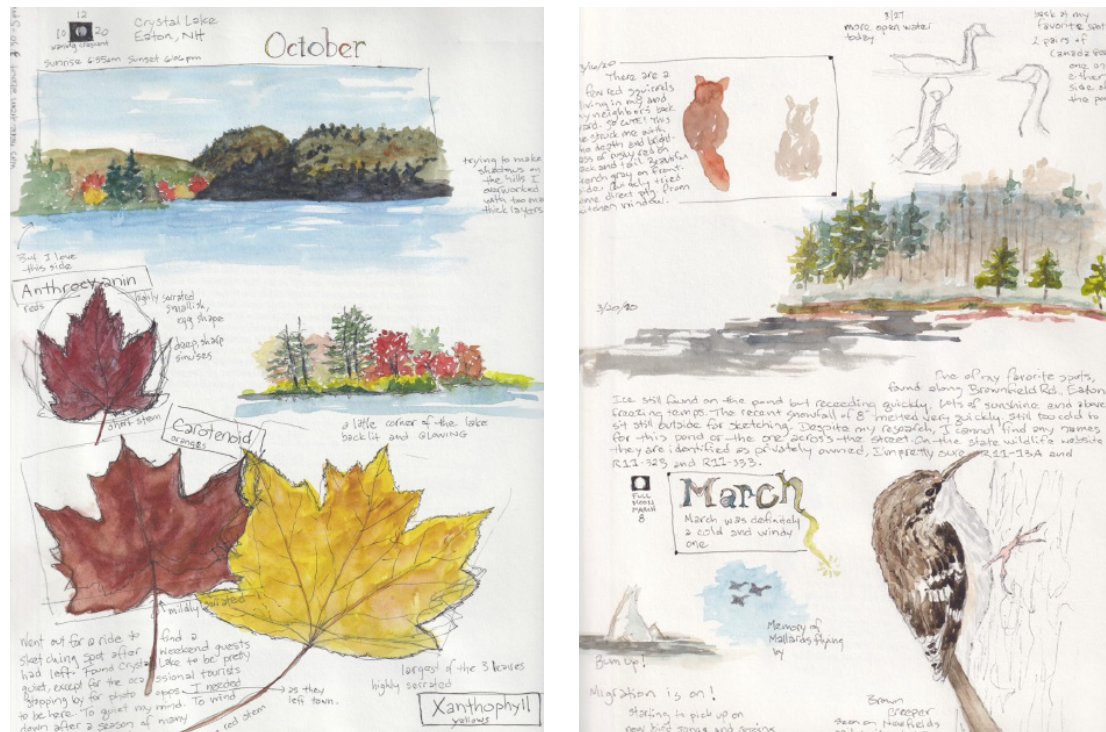 12
10 20
waning crescent
Crystal Lake
Eaton, NH
October
sunrise 6:55am sunset 6:06pm
trying to make
shadows on
the hills I
overworked
with too
thick layers
But I love
this side
Anthrocyanin
reds
highly serrated
smallish,
egg shape
deep, sharp
sinuses
short stem
Carotenoid
oranges
a little corner of the lake
backlit and GLOWING
mildly serrated
Went out for a ride to find a
sketching spot after weekend guests
had left. Found Crystal Lake to be pretty
quiet, except for the occassional tourists
stopping by for photo apps. I needed → as they left town.
to be here. To quiet my mind. To wind
down after a season of many
red stem
largest of the 3 leaves
highly serrated
Xanthophyll
yellows
3/27
more open water
today.
back at my
favorite spot
2 pairs of
Canada
one on
either
side of
the
3/16/20
There are a
few red squirrels
living in my and
my neighbors back
yard. SO CUTE! This
one struck me with
the depth and bright-
ness of rusty red on
back and tail. Beautiful
gray on front.
Quickly tried
some direct ptg from
kitchen window.
3/20/20
One of my favorite spots,
found along Brownfield Rd., Eaton
Ice still found on the pond but receeding quickly. Lots of sunshine and above
freezing temps. The recent snowfall of 8" melted very quickly. Still too cold to
sit still outside for sketching. Despite my research, I cannot find any names
for this pond or the one across the street. On the state wildlife website
they are identified as privately owned, I'm pretty sure R11-13A and
R11-323 and R11-333.
FULL
MOON
MARCH
8
March
March was definitely
a cold and windy
one
Memory of
Mallards flying
by
Bum up!
Migration is on!
starting to pick up on
new bird songs and
Brown
Creeper
seen on